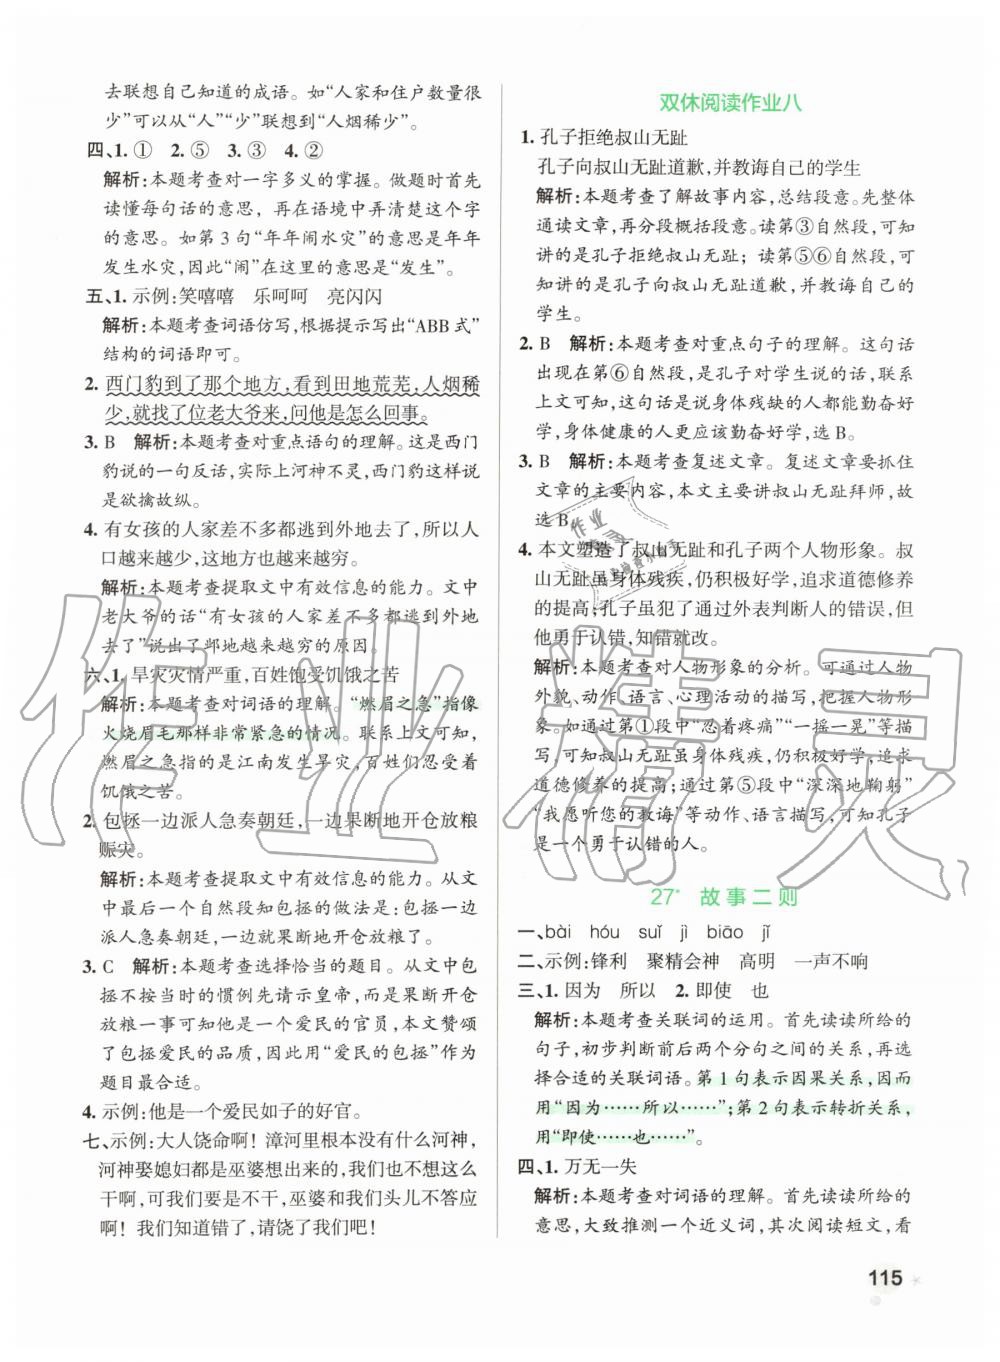 去联想自己知道的成语。如“人家和住户数量很
少”可以从“人”“少”联想到“人烟稀少”。
四、1. ① 2. ⑤ 3. ③ 4. ②
解析:本题考查对一字多义的掌握。做题时首先
读懂每句话的意思，再在语境中弄清楚这个字
的意思。如第 3 句“年年闹水灾”的意思是年年
发生水灾,因此“闹”在这里的意思是“发生”。
五、1. 示例:笑嘻嘻 乐呵呵 亮闪闪
解析:本题考查词语仿写,根据提示写出“ABB 式”
结构的词语即可。
2. 西门豹到了那个地方,看到田地荒芜,人烟稀
少,就找了位老大爷来,问他是怎么回事。
3. B 解析:本题考查对重点语句的理解。这是西门
豹说的一句反话,实际上河神不灵,西门豹这样说
是欲擒故纵。
4. 有女孩的人家差不多都逃到外地去了,所以人
口越来越少,这地方也越来越穷。
解析:本题考查提取文中有效信息的能力。文中
老大爷的话“有女孩的人家差不多都逃到外地
去了”说出了邺地越来越穷的原因。
六、1. 旱灾灾情严重,百姓饱受饥饿之苦
解析:本题考查对词语的理解。“燃眉之急”指像
火烧眉毛那样非常紧急的情况。联系上文可知,
燃眉之急指的是江南发生旱灾,百姓们忍受着
饥饿之苦。
2. 包拯一边派人急奏朝廷,一边果断地开仓放粮
赈灾。
解析:本题考查提取文中有效信息的能力。从文
中最后一个自然段知包拯的做法是:包拯一边
派人急奏朝廷,一边果断地开仓放粮。
3. C 解析:本题考查选择恰当的题目。从文中包
拯不按当时的惯例先请示皇帝,而是果断开仓
放粮一事可知他是一个爱民的官员,本文赞颂
了包拯爱民的品质,因此用“爱民的包拯”作为
题目最合适。
4. 示例:他是一个爱民如子的好官。
七、示例:大人饶命啊！漳河里根本没有什么河神,
河神娶媳妇都是巫婆想出来的,我们也不想这么
干啊,可我们要是不干,巫婆和我们头儿不答应
啊！我们知道错了,请饶了我们吧!
双休阅读作业八
1. 孔子拒绝叔山无趾
孔子向叔山无趾道歉,并教诲自己的学生
解析:本题考查了解故事内容,总结段意。先整体
通读文章,再分段概括段意。读第③自然段,可知
讲的是孔子拒绝叔山无趾；读第⑤⑥自然段,可
知讲的是孔子向叔山无趾道歉,并教诲自己的
学生。
2. B 解析:本题考查对重点句子的理解。这句话
出现在第⑥自然段,是孔子对学生说的话,联系
上文可知,这句话是说身体残缺的人都能勤奋好
学,身体健康的人更应该勤奋好学,选 B。
3. B 解析:本题考查复述文章。复述文章要抓住
文章的主要内容,本文主要讲叔山无趾拜师,故
选 B。
4. 本文塑造了叔山无趾和孔子两个人物形象。叔
山无趾虽身体残疾,仍积极好学,追求道德修养
的提高;孔子虽犯了通过外表判断人的错误,但
他勇于认错,知错就改。
解析:本题考查对人物形象的分析。可通过人物
外貌、动作、语言、心理活动的描写,把握人物形
象。如通过第①段中“忍着疼痛”“一摇一晃”等描
写,可知叔山无趾虽身体残疾,仍积极好学,追求
道德修养的提高;通过第⑤段中“深深地鞠躬”
“我愿听您的教诲”等动作、语言描写,可知孔子
是一个勇于认错的人。
27* 故事二则
一、bài hóu suǐ jì biāo jǐ
二、示例:锋利 聚精会神 高明 一声不响
三、1. 因为 所以 2. 即使 也
解析:本题考查关联词的运用。首先读读所给的
句子,初步判断前后两个分句之间的关系,再选
择合适的关联词语。第 1 句表示因果关系,因而
用“因为……所以……”;第 2 句表示转折关系,
用“即使……也……”。
四、1. 万无一失
解析:本题考查对词语的理解。首先读读所给的
意思,大致推测一个近义词,其次阅读短文,看
115
作业精灵